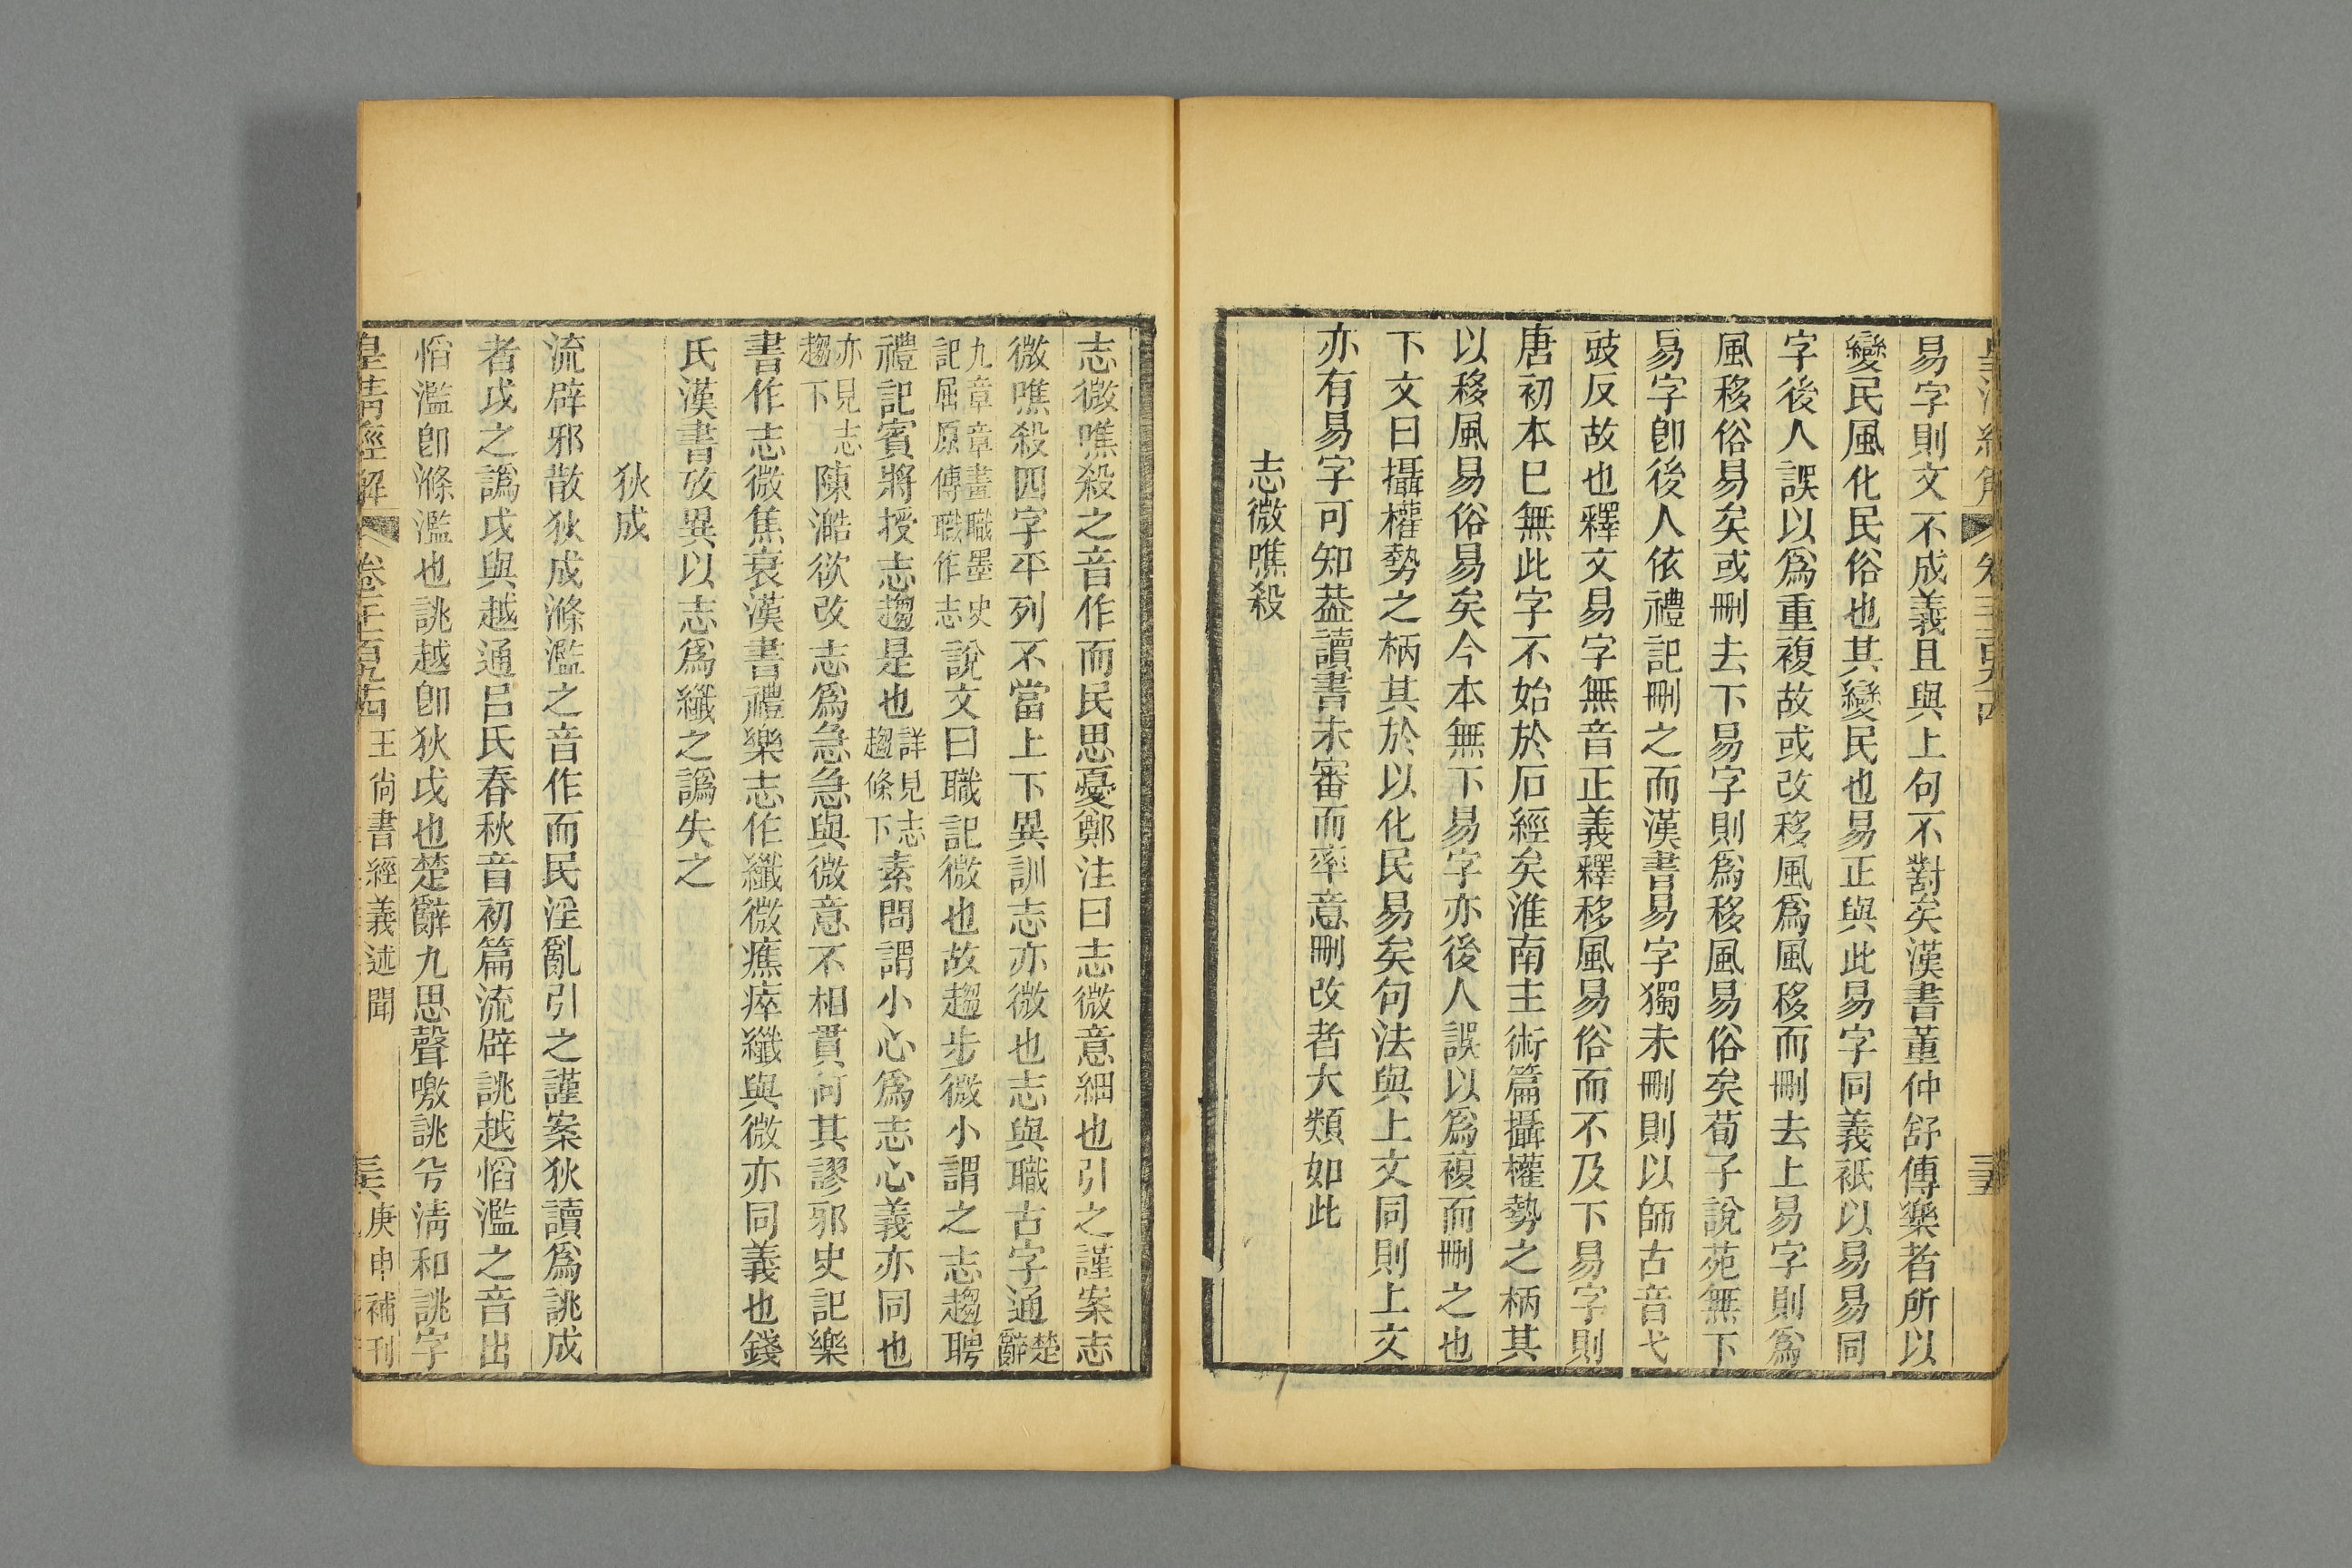 易字則文不成義且與上句不對矣漢書董仲舒傳樂者所以
變民風化民俗也其變民也易正與此易字同義祇以易易同
字後人誤以爲重複故或改移風爲風移而刪去上易字則爲
風移俗易矣或刪去下易字則爲移風易俗矣荀子說苑無下
易字卽後人依禮記刪之而漢書易字獨未刪則以師古音弋
豉反故也釋文易字無音正義釋移風易俗而不及下易字則
唐初本已無此字不始於石經矣淮南主術篇攝權勢之柄其
以移風易俗易矣今本無下易字亦後人誤以爲複而刪之也
下文曰攝權勢之柄其於以化民易矣句法與上文同則上文
亦有易字可知葢讀書未審而率意刪改者大類如此
志微噍殺
志微噍殺之音作而民思憂鄭注曰志微意細也引之謹案志
微噍殺四字平列不當上下異訓志亦微也志與職古字通楚辭
九章章畫職墨史記屈原傳職作志說文曰職記微也故趨步微小謂之志趨聘
禮記賓將授志趨是也詳見志趨條下素問謂小心爲志心義亦同也
亦見志趨下陳澔欲改志爲急急與微意不相貫何其謬邪史記樂
書作志微焦衰漢書禮樂志作纖微癄瘁纖與微亦同義也錢
氏漢書攷異以志爲纖之譌失之
狄成
流辟邪散狄成滌濫之音作而民淫亂引之謹案狄讀爲誂成
者戉之譌戉與越通呂氏春秋音初篇流辟誂越慆濫之音出
慆濫卽滌濫也誂越卽狄戉也楚辭九思聲噭誂兮淸和誂字
皇淸經解 卷千二百九十四 王尙書經義述聞 三六 庚申補刊